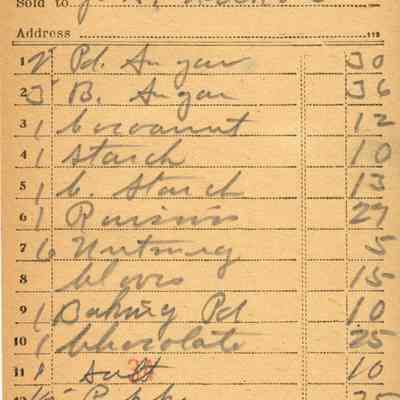 Sold to
Address
1 2 Pd. Sugar 30
2 5 B. Sugar 36
3 1 Cocoanut 12
4 1 Starch 10
5 1 C. Starch 13
6 1 Raisins 29
7 6 Nutmeg 5
8 Cloves 15
9 1 Baking Pd 10
10 1 Chocolate 25
11 1 Salt 10
12 25